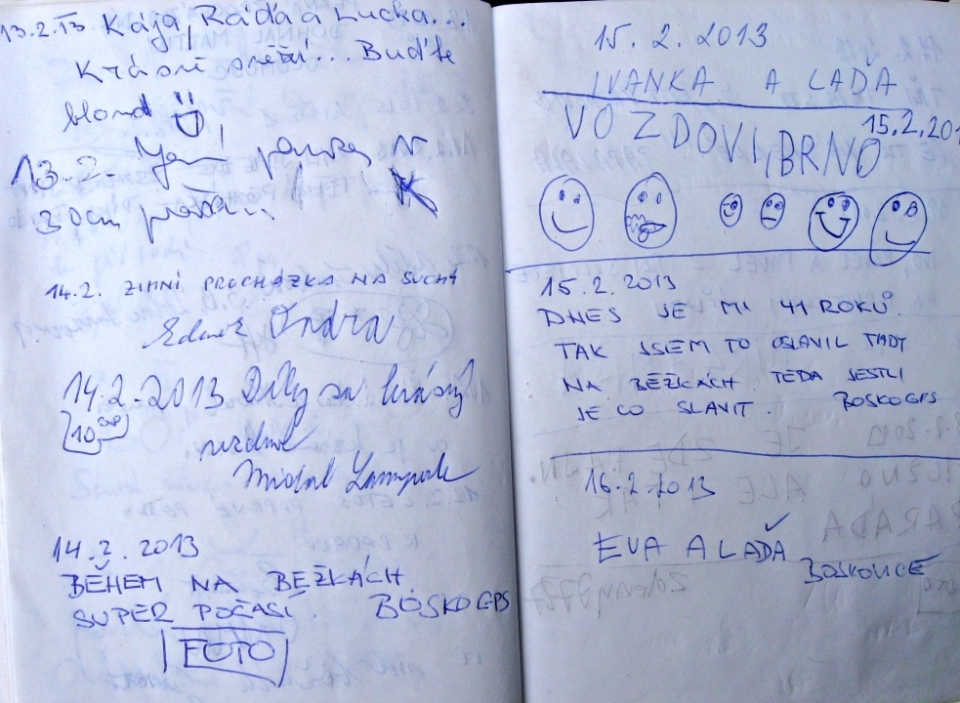 13.2.13 Kája, Ráďa a Lucka...
Krásně sněží... Buďte
blond
13.2.
30cm
14.2. ZIMNÍ PROCHÁZKA NA SUCHÝ
Zdeněk Ondra
14.2.2013 Díky za krásný
10,00
Michal
14.2.2013
BĚHEM NA BĚŽKÁCH
SUPER POČASÍ. BOSKOGPS
FOTO
15.2.2013
IVANKA A LAĎA
VOZDOVI, BRNO 15.2.201
15.2.2013
DNES JE MI 41 ROKŮ.
TAK JSEM TO OSLAVIL TADY
NA BĚŽKÁCH TEDA JESTLI
JE CO SLAVIT. BOSKOGPS
16.2.2013
EVA A LAĎA
BOSKOVICE